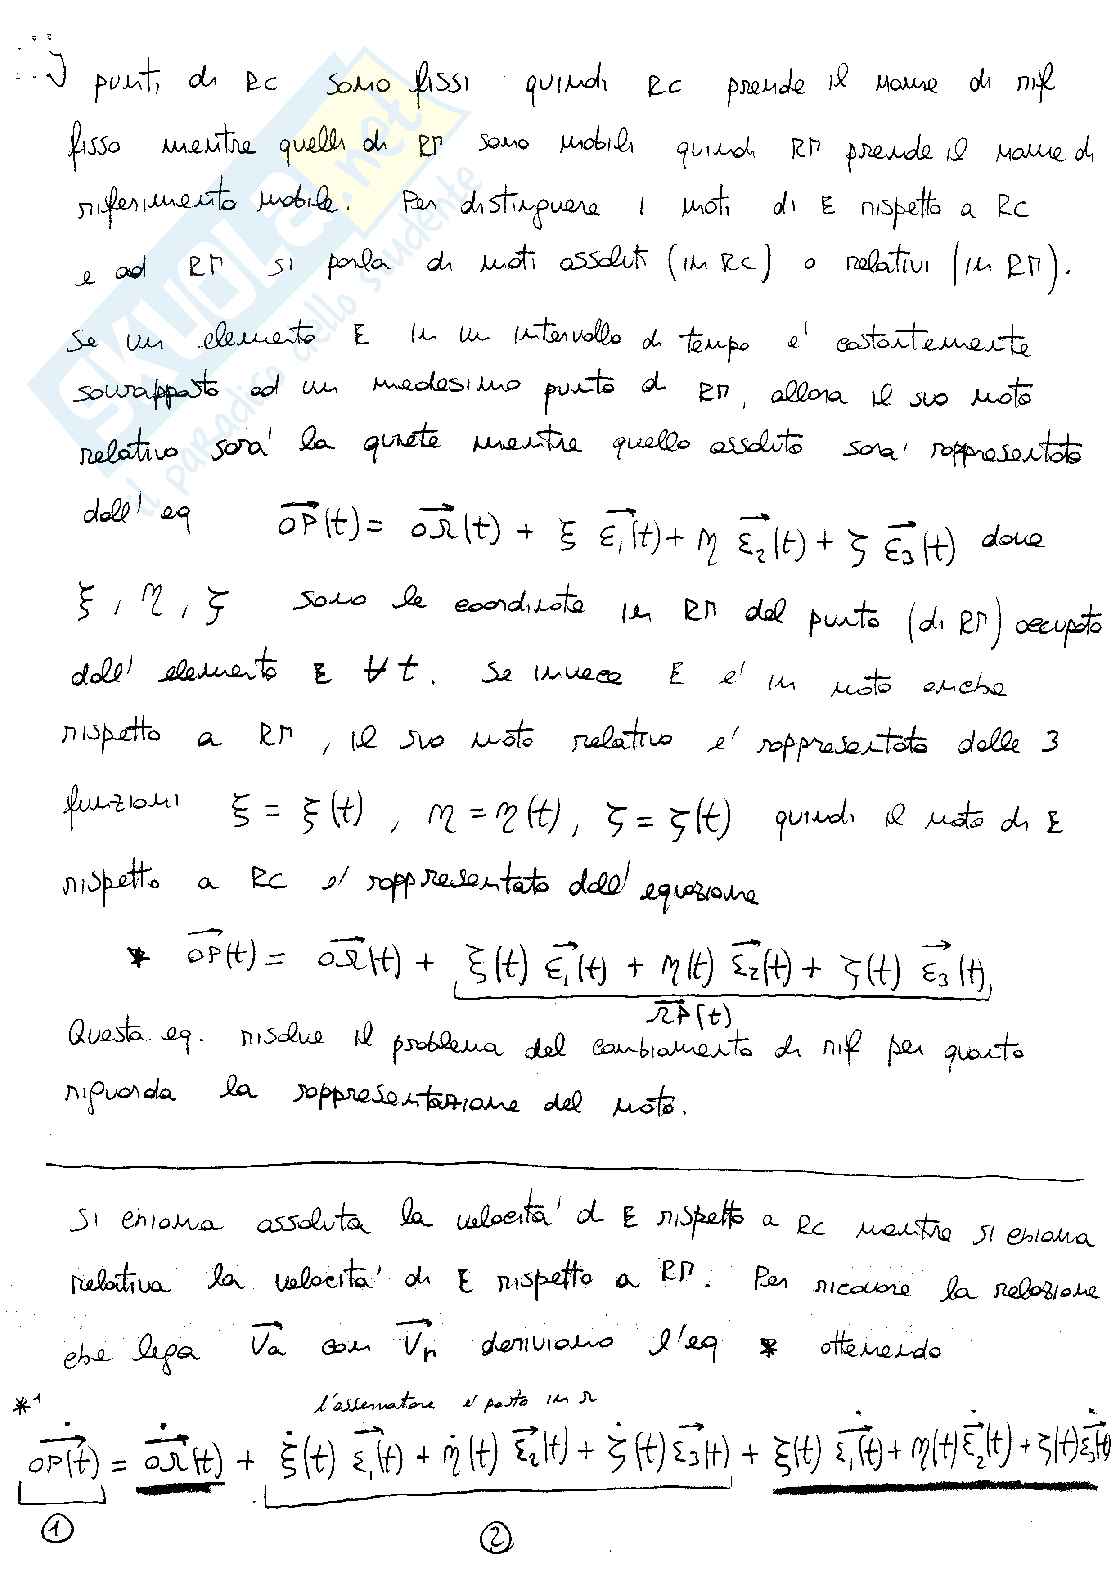 I punti di RC sono fissi quindi RC prende il nome di rif
fisso mentre quelli di RM sono mobili quindi RM prende il nome di
riferimento mobile. Per distinguere i moti di E rispetto a RC
e ad RM si parla di moti assoluti (in RC) o relativi (in RM).
Se un elemento E in un intervallo di tempo e' costantemente
sovrapposto ad un medesimo punto di RM, allora il suo moto
relativo sara' la quiete mentre quello assoluto sara' rappresentato
dall' eq $\overrightarrow{OP}(t) = \overrightarrow{O\Omega}(t) + \xi \vec{\varepsilon_1}(t) + \eta \vec{\varepsilon_2}(t) + \zeta \vec{\varepsilon_3}(t)$ dove
ξ, η, ζ sono le coordinate in RM del punto (di RM) occupato
dall' elemento E ∀t. Se invece E e' in moto anche
rispetto a RM, il suo moto relativo e' rappresentato dalle 3
funzioni ξ = ξ(t), η = η(t), ζ = ζ(t) quindi il moto di E
rispetto a RC e' rappresentato dall' equazione
* $\overrightarrow{OP}(t) = \overrightarrow{O\Omega}(t) + \xi(t) \vec{\varepsilon_1}(t) + \eta(t) \vec{\varepsilon_2}(t) + \zeta(t) \vec{\varepsilon_3}(t)$
$\overrightarrow{\Omega P}(t)$
Questa eq. risolve il problema del cambiamento di rif per quanto
riguarda la rappresentazione del moto.
Si chiama assoluta la velocita' di E rispetto a RC mentre si chiama
relativa la velocita' di E rispetto a RM. Per ricavare la relazione
che lega $\vec{V_a}$ con $\vec{V_r}$ deriviamo l'eq * ottenendo
*1 l'osservatore e' posto in Ω
$\dot{\overrightarrow{OP}}(t) = \dot{\overrightarrow{O\Omega}}(t) + \dot{\xi}(t) \vec{\varepsilon_1}(t) + \dot{\eta}(t) \vec{\varepsilon_2}(t) + \dot{\zeta}(t) \vec{\varepsilon_3}(t) + \xi(t) \dot{\vec{\varepsilon_1}}(t) + \eta(t) \dot{\vec{\varepsilon_2}}(t) + \zeta(t) \dot{\vec{\varepsilon_3}}(t)$
① ②
SKUOLA.net
il paradiso dello studente